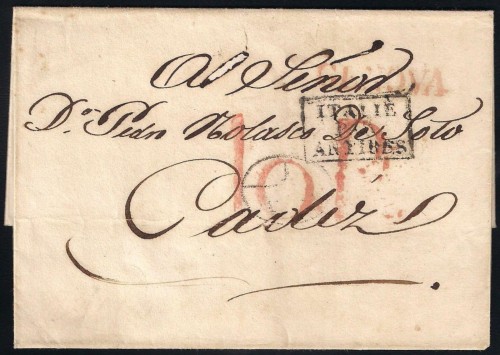 Al Señor
Dn. Pedro Nolasco De Soto
Cadiz
ITALIE
ANTIBES
10 R.